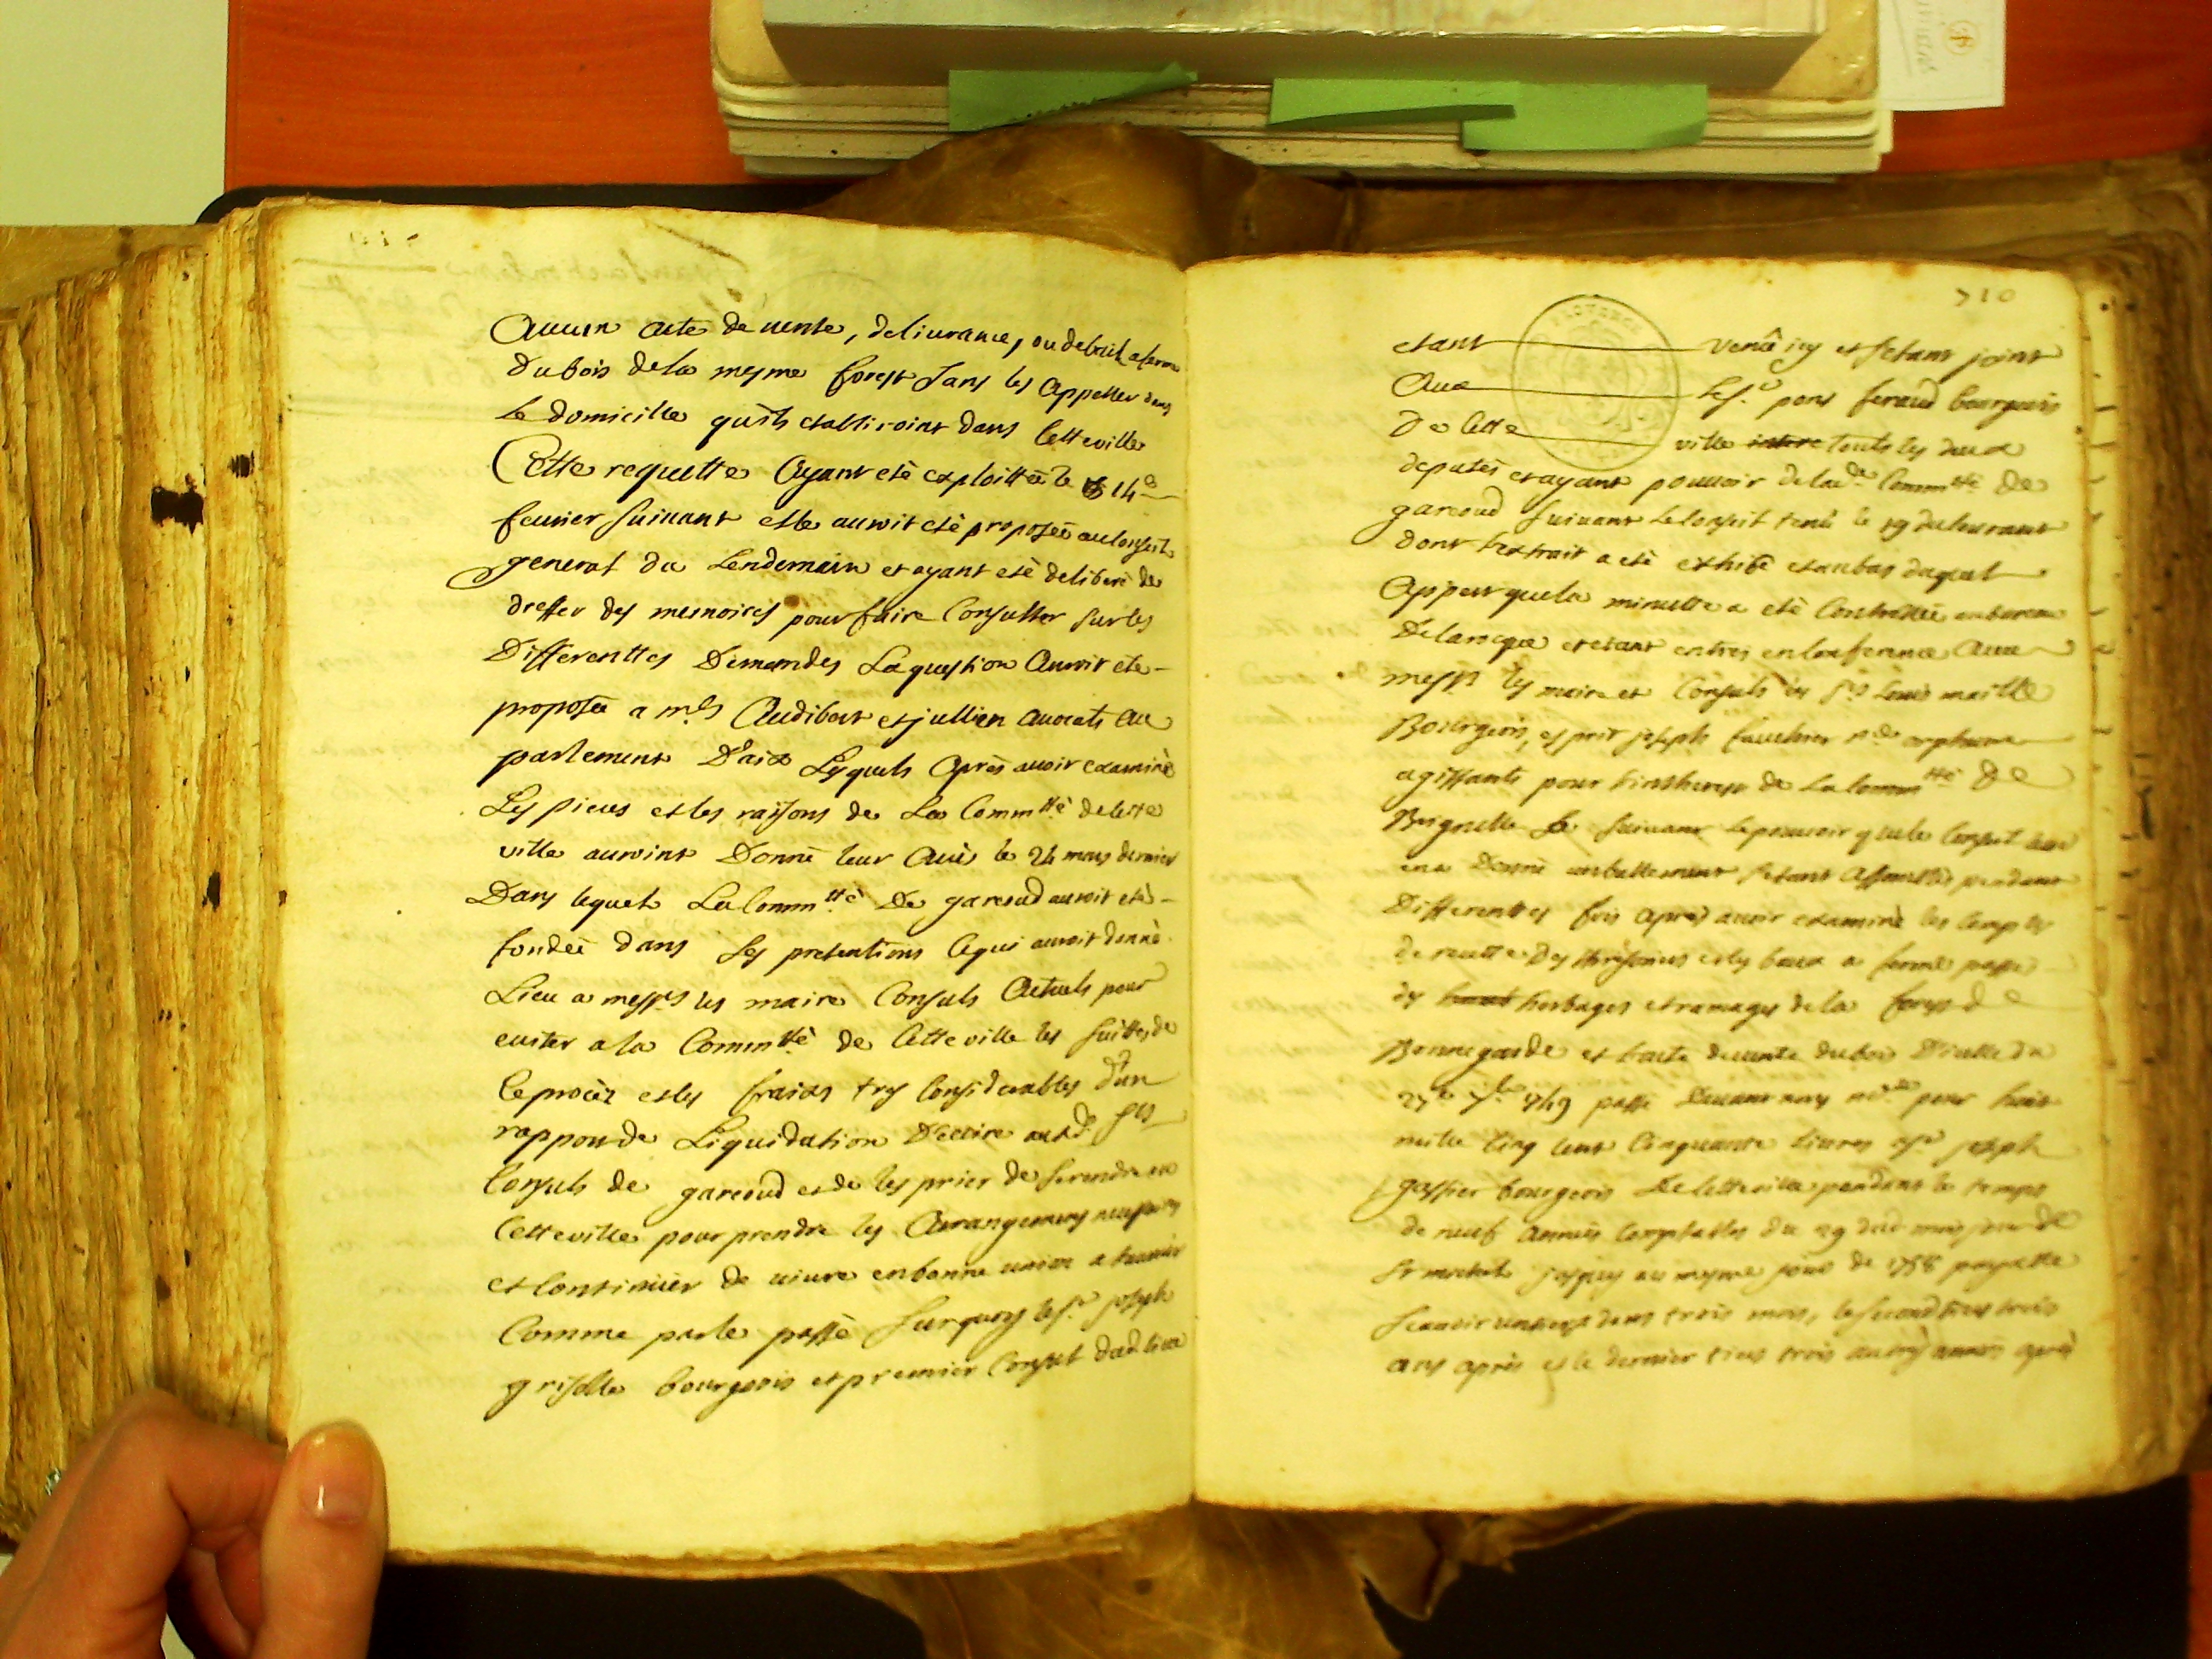 Aucun acte de vente, deliurance, ou debail a ferme
Du bois dela mesme forest sans les Appeller dans
le domicille quils etabliroint dans Cette ville
Cette requette Ayant eté exploittée le 14e
feurier suiuant elle auroit eté proposée au Conseil
general du Lendemain et ayant eté deliberé de
dresser des memoires pour faire Consulter sur les
Differenttes Demandes La question Auroit ete
proposée a mrs Audibert et jullien auocats au
parlement D'aix Lesquels Aprés auoir examiné
Les pieces et les raisons de La Commtté de Cette
ville auroint Donné leur Auis le 24 mars dernier
Dans lequel La Commtté De gareoud auroit eté
fondée dans ses pretentions Ce qui auroit donné
Lieu a messrs les maire Consuls Actuels pour
euiter a la Commtté de Cette ville les suittes de
Ce procéz et les fraix trés Considerables d'un
rapport de Liquidation D'ecrire auxd. srs
Consuls de gareoud et de les prier de se rendre en
Cette ville pour prendre les Arrangemens
et Continüer de uiure en bonne union a l'auenir
Comme par le passé Sur quoy le sr joseph
griselle bourgeois et premier Consul dud. lieu
710
etant venû icy et s'etant joint
Aux le sr pons feraud bourgeois
De Cette ville touts les deux
deputés et ayant pouuoir de lade Commtté de
gareoud suiuant le Conseil tenû le 19 du Courant
dont l'extrait a eté exhibé et au bas duquel
Appert que la minutte a eté Controllée au bureau
et etant entrés en Conference Auec
messrs les maire et Consuls srs Louis maille
Bourgeois, esprit joseph fauchier
agissants pour l'intherest de La Commtté de
Brignolle suiuant le pouuoir que le Conseil
en a Donné s'etant Assemblés pendant
Differenttes fois aprés auoir examiné les Comptes
de recette des thresoriers et les baux a ferme passés
des herbages et ramages de la forest de
Bonnegarde et l'acte de uente du bois D'icelle du
1749 passé Deuant nous nore pour huit
mille Cinq Cent Cinquante Liures a sr joseph
gassier bourgeois De Cette ville pendant le temps
de neuf Années Comptables du 29 dud mois jour de
St michel jusques au mesme jour de 1758 payable
Scauoir un tiers dans trois mois, le second tiers trois
ans aprés et le dernier tiers trois autres années aprés